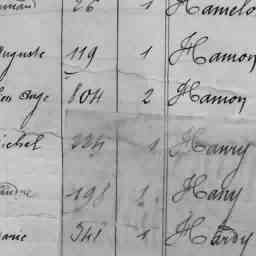 26 1 Hamelo
Auguste 119 1 Hamon
Ange 804 2 Hamon
Michel 334 1 Hanry
198 1 Hany
Marie 341 1 Hardy